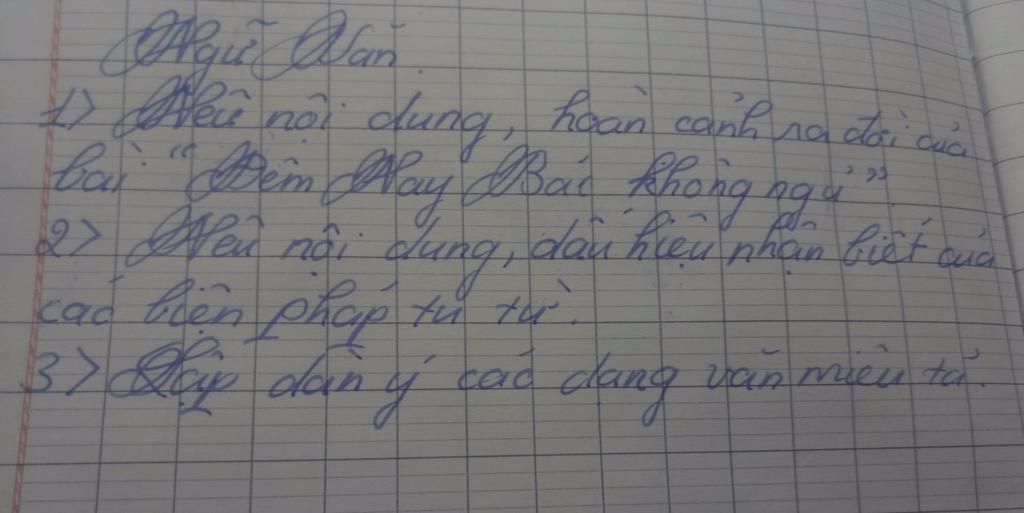 Ngữ Văn.
1> Nêu nội dung, hoàn cảnh ra đời của
bài: "Đêm Nay Bác không ngủ".
2> Nêu nội dung, dấu hiệu nhận biết của
các biện pháp tu từ.
3> Lập dàn ý các dạng văn miêu tả.